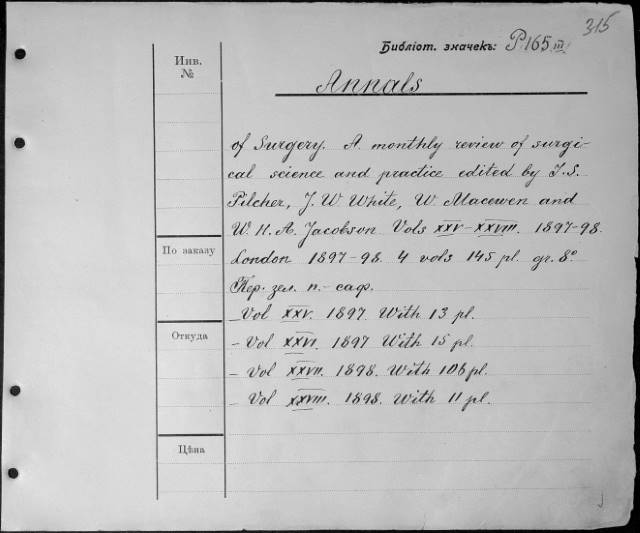 315
Библіот. значекъ: P.165 III
Инв. №
Annals
of Surgery. A monthly review of surgi-
cal science and practice edited by L.S.
Pilcher, J. W. White, W. Macewen and
W. H. A. Jacobson Vols XXV-XXVIII. 1897-98.
По заказу
London 1897-98. 4 vols 145 pl. gr. 8°
Пер. зел. п.- саф.
- Vol XXV. 1897. With 13 pl.
Откуда
- Vol XXVI. 1897 With 15 pl.
- Vol XXVII. 1898. With 106 pl.
- Vol XXVIII. 1898. With 11 pl.
Цѣна